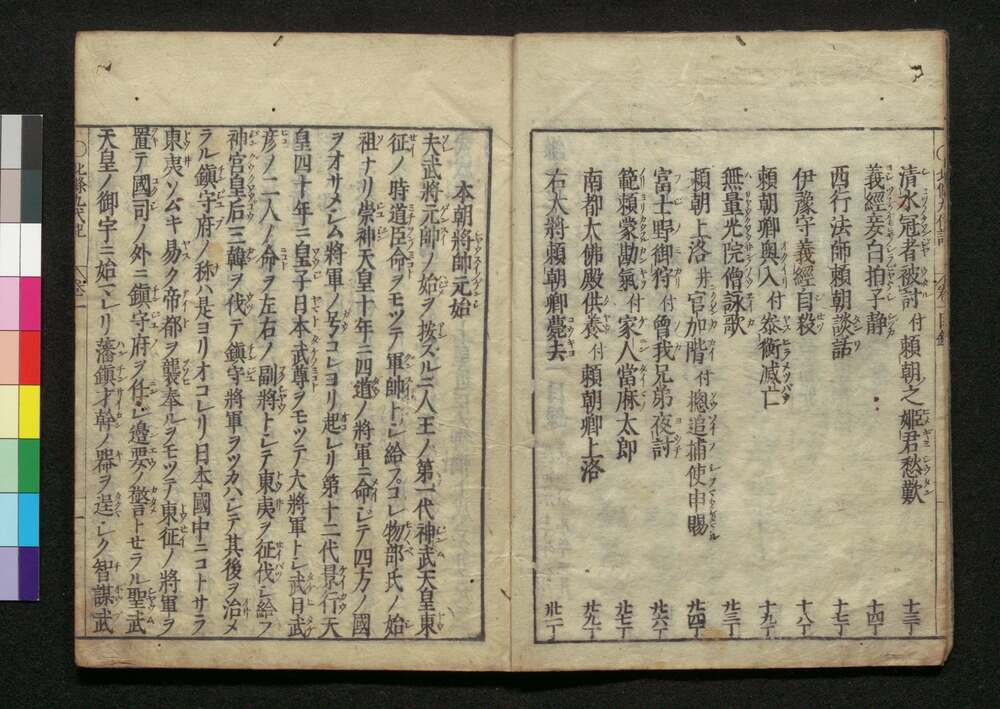 清水冠者被討 付 賴朝之姬君愁歎 十三丁
義經妾白拍子靜 十四丁
西行法師賴朝談話 十七丁
伊豫守義經自殺 十八丁
賴朝卿奧入 付 泰衡滅亡 十九丁
無量光院僧詠歌 廿三丁
賴朝上洛 并 官加階 付 摠追捕使申賜 廿四丁
富士野御狩 付 曾我兄弟夜討 廿六丁
範賴蒙勘氣 付 家人當麻太郎 廿七丁
南都大佛殿供養 付 賴朝卿上洛 廿九丁
右大將賴朝卿薨去
本朝將帥元始
夫武將元帥ノ始ヲ按ズルニ人王ノ第一代神武天皇東
征ノ時道臣命ヲモツテ軍帥トシ給フコレ物部氏ノ始
祖ナリ崇神天皇十年ニ四道ノ將軍ニ命ジテ四方ノ國
ヲオサメシム將軍ノ号コレヨリ起レリ第十二代景行天
皇四十年ニ皇子日本武尊ヲモツテ大將軍トシ武日武
彥ノ二人ノ命ヲ左右ノ副將トシテ東夷ヲ征伐シ給フ
神宮皇后三韓ヲ伐テ鎮守將軍ヲツカハシテ其後ヲ治メ
ラル鎮守府ノ称ハ是ヨリオコレリ日本國中ニコトサラ
東夷ソムキ易ク帝都ヲ襲奉ルヲモツテ東征ノ將軍ヲ
置テ國司ノ外ニ鎮守府ヲ任シ邊要ノ警トセラル聖武
天皇ノ御宇ニ始マレリ藩鎮才幹ノ器ヲ逞シク智謀武
北條九代記 卷一